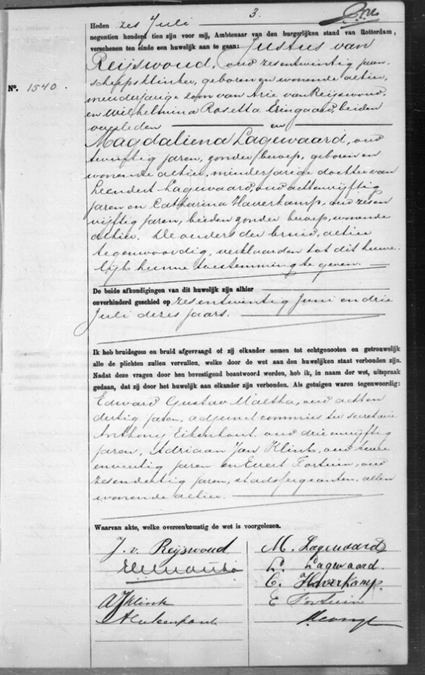 Heden zes Juli 3.
negentien honderd tien zijn voor mij, Ambtenaar van den burgerlijken stand van Rotterdam,
verschenen ten einde een huwelijk aan te gaan: Justus van
Nº. 1540.
Reijswoud, oud zesentwintig jaren,
scheepsklinker, geboren en wonende alhier,
meerderjarige zoon van Arie van Reijswoud
en Wilhelmina Rosetta beiden
overleden en
Magdaliena Lagewaard, oud
twintig jaren, zonder beroep, geboren en
wonende alhier, minderjarige dochter van
Leendert Lagewaard, oud achtenvijftig
jaren en Catharina Haverkamp, oud zesen
vijftig jaren, beiden zonder beroep, wonende
alhier. De ouders der bruid, alhier
tegenwoordig, verklaarden tot dit huwe-
lijk hunne toestemming te geven.
De beide afkondigingen van dit huwelijk zijn alhier
onverhinderd geschied op zesentwintig Juni en drie
Juli dezes jaars.
Ik heb bruidegom en bruid afgevraagd of zij elkander nemen tot echtgenooten en getrouwelijk
alle de plichten zullen vervullen, welke door de wet aan den huwelijken staat verbonden zijn.
Nadat deze vragen door hen bevestigend beantwoord werden, heb ik, in naam der wet, uitspraak
gedaan, dat zij door het huwelijk aan elkander zijn verbonden. Als getuigen waren tegenwoordig:
Edward Gustav Maltha, oud achten
dertig jaren, adjunct commies ter secretarie
Anthony Eikenhout, oud drieenvijftig
jaren, Adriaan Jan Klink, oud
jaren en Evert Fortuin, oud
zesendertig jaren, stadssergeanten, allen
wonende alhier.
Waarvan akte, welke overeenkomstig de wet is voorgelezen.
J. v. Reijswoud
M. Lagewaard
L. Lagwaard
C. Haverkamp
AJKlink
E Fortuin